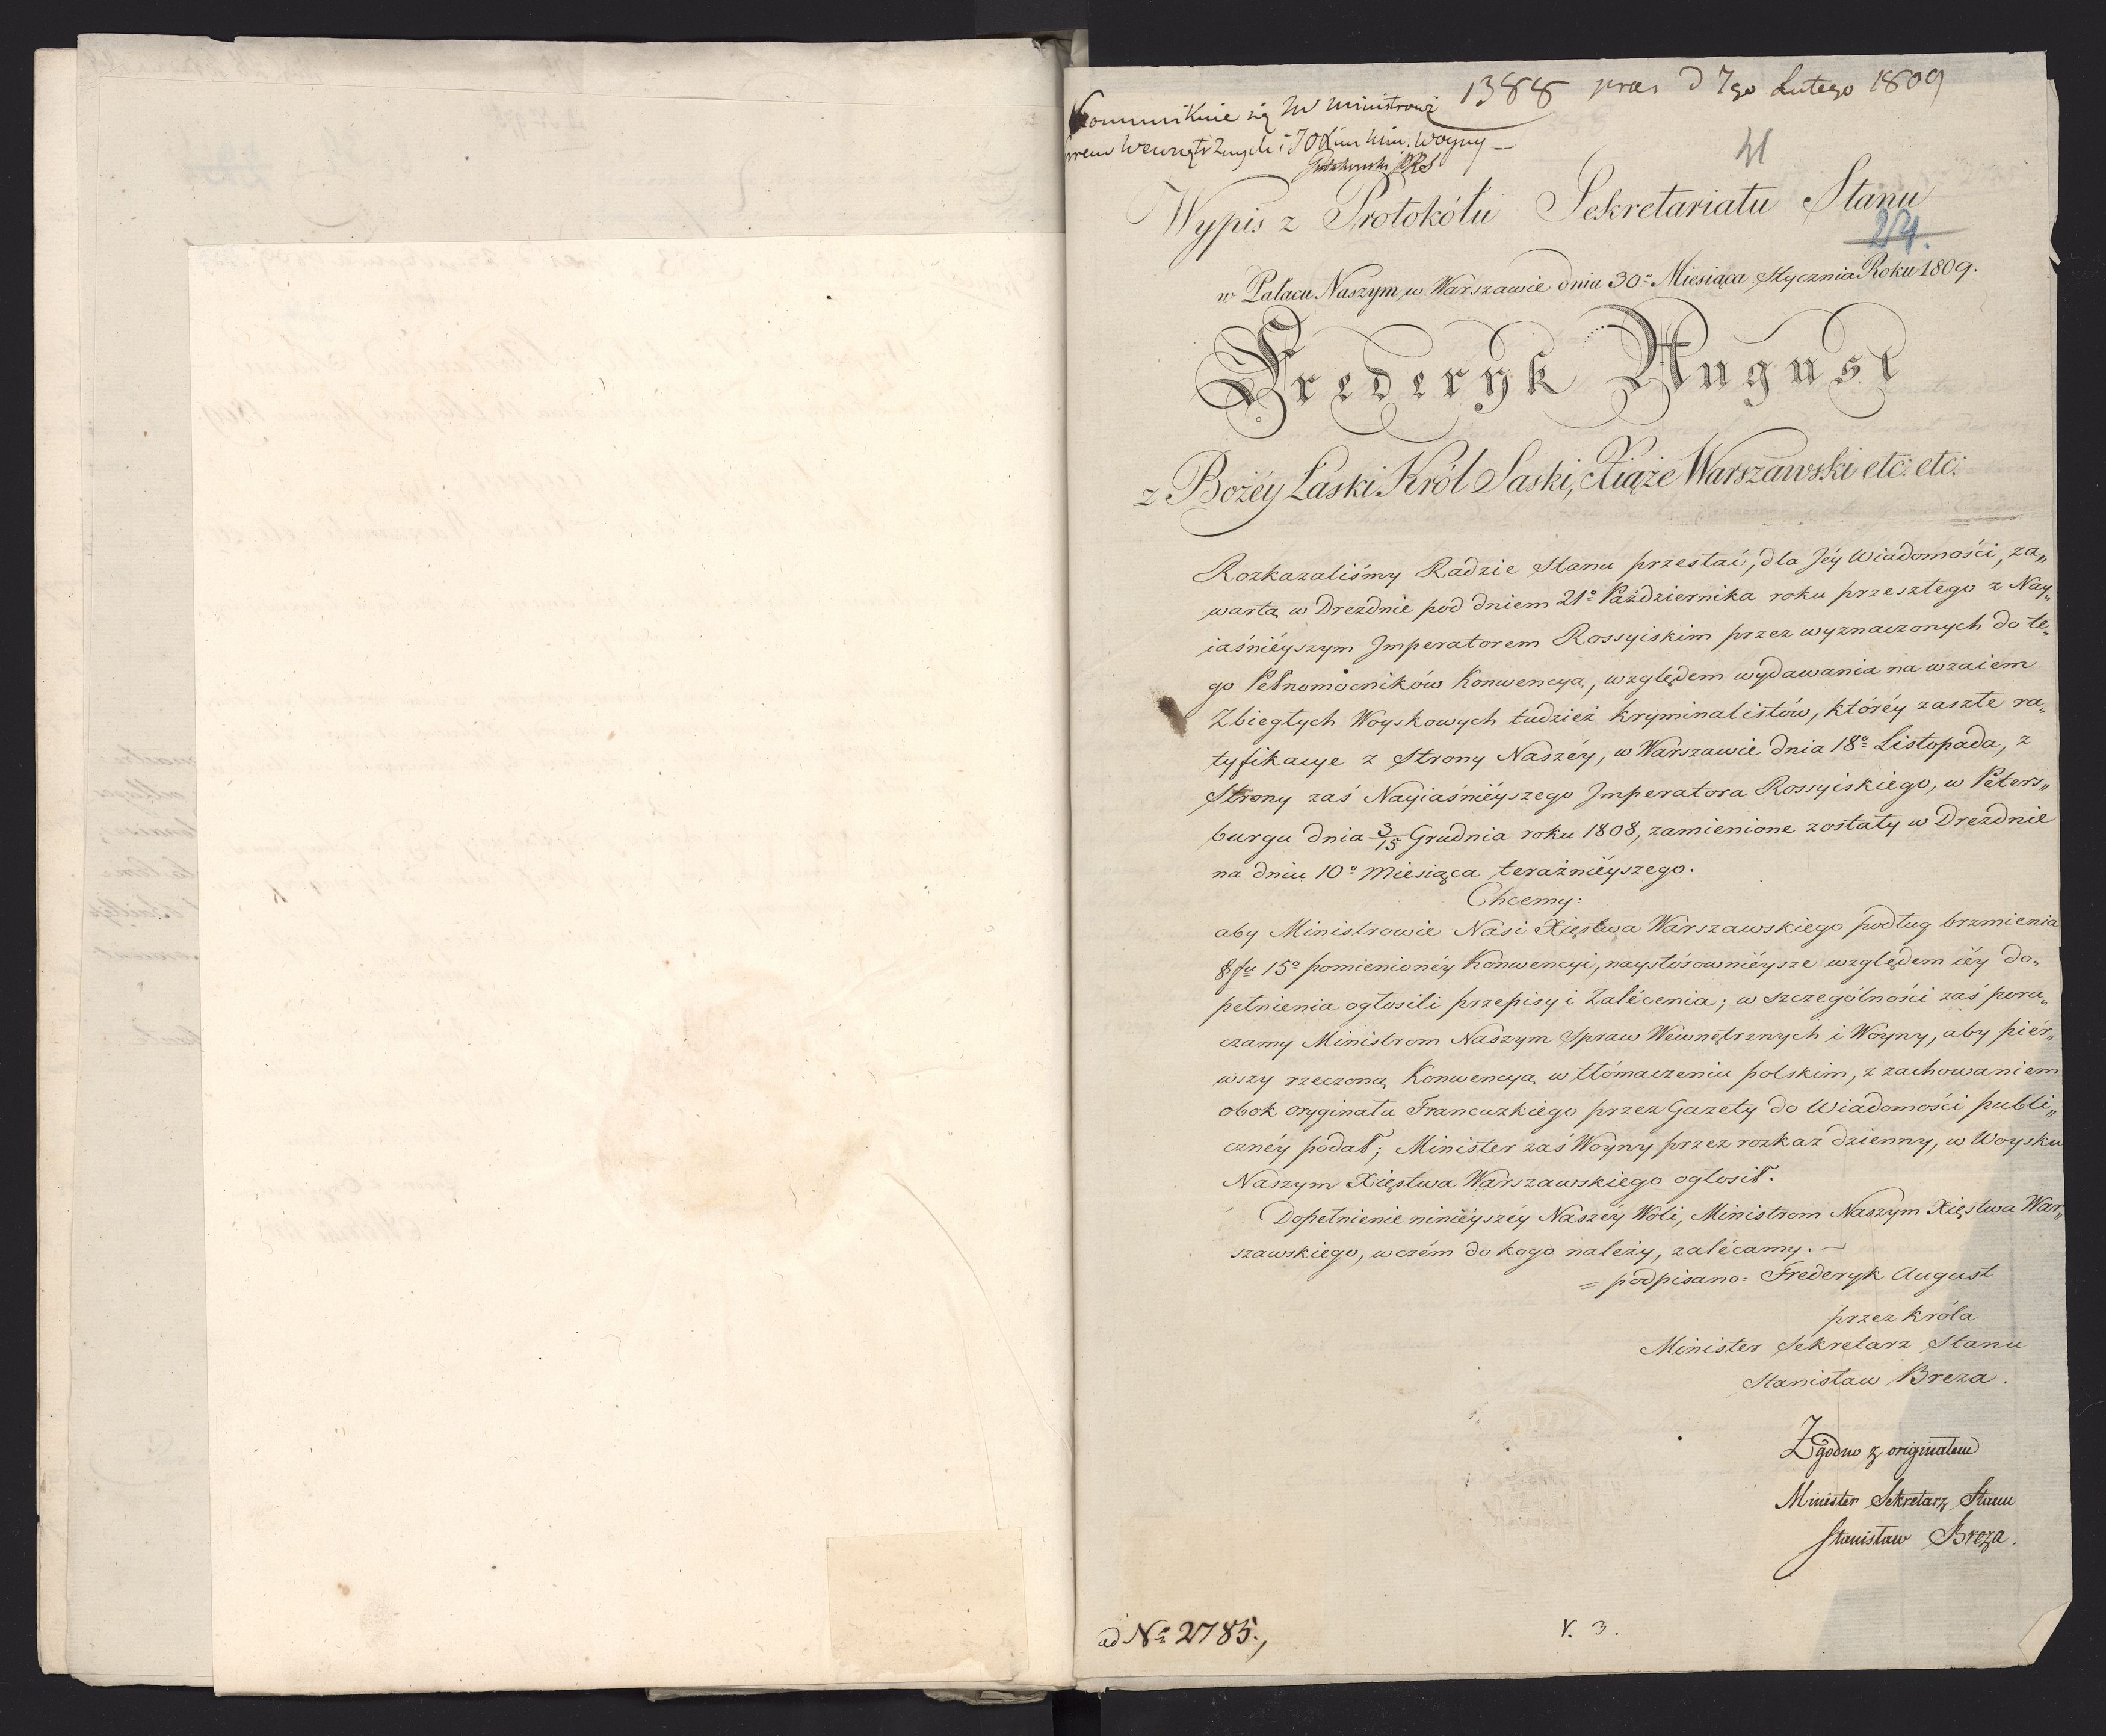 1388 prae d 7go Lutego 1809
Kommunikuie się JW Ministrowi
Wewnętrznych i JO Xciu Min: Woyny –
41
Wypis z Protokółu Sekretariatu Stanu
24.
w Pałacu Naszym w Warszawie dnia 30º Miesiąca Stycznia Roku 1809.
Frederyk August
z Bożéy Łaski Król Saski, Xiąże Warszawski etc: etc:
Rozkazaliśmy Radzie Stanu przesłać, dla Jéy Wiadomości, za„
wartą w Dreźdnie pod dniem 21º Października roku przeszłego z Nay„
iaśniéyszym Jmperatorem Rossyiskim przez wyznaczonych do te„
go Pełnomocników Konwencyą, względem wydawania na wzaiem
Zbiegłych Woyskowych tudzież Kryminalistów, któréy zaszłe ra„
tyfikacye z Strony Naszéy, w Warszawie dnia 18º Listopada, z
Strony zaś Nayiaśniéyszego Jmperatora Rossyiskiego, w Peters„
burgu dnia 3/15 Grudnia roku 1808, zamienione zostały w Dreźdnie
na dniu 10º Miesiąca teraźniéyszego.
Chcemy:
aby Ministrowie Nasi Xięstwa Warszawskiego podług brzmienia
§fu 15º pomienionéy Konwencyi, naystósowniéysze względem iéy do„
pełnienia ogłosili przepisy i Zalécenia; w szczególności zaś poru„
czamy Ministrom Naszym Spraw Wewnętrznych i Woyny, aby piér„
wszy rzeczoną Konwencyą w tłómaczeniu polskim, z zachowaniem
obok oryginału Francuzkiego przez Gazety do Wiadomości publi„
cznéy podał; Minister zaś Woyny przez rozkaz dzienny, w Woysku
Naszym Xięstwa Warszawskiego ogłosił.
Dopełnienie niniéyszéy Naszéy Woli, Ministrom Naszym Xięstwa War„
szawskiego, w czém do kogo należy, zalécamy. –
= podpisano = Frederyk August
przez Króla
Minister Sekretarz Stanu
Stanisław Breza.
Zgodno z originałem
Minister Sekretarz Stanu
Stanisław Breza.
ad Nº 2785.,
V. 3.